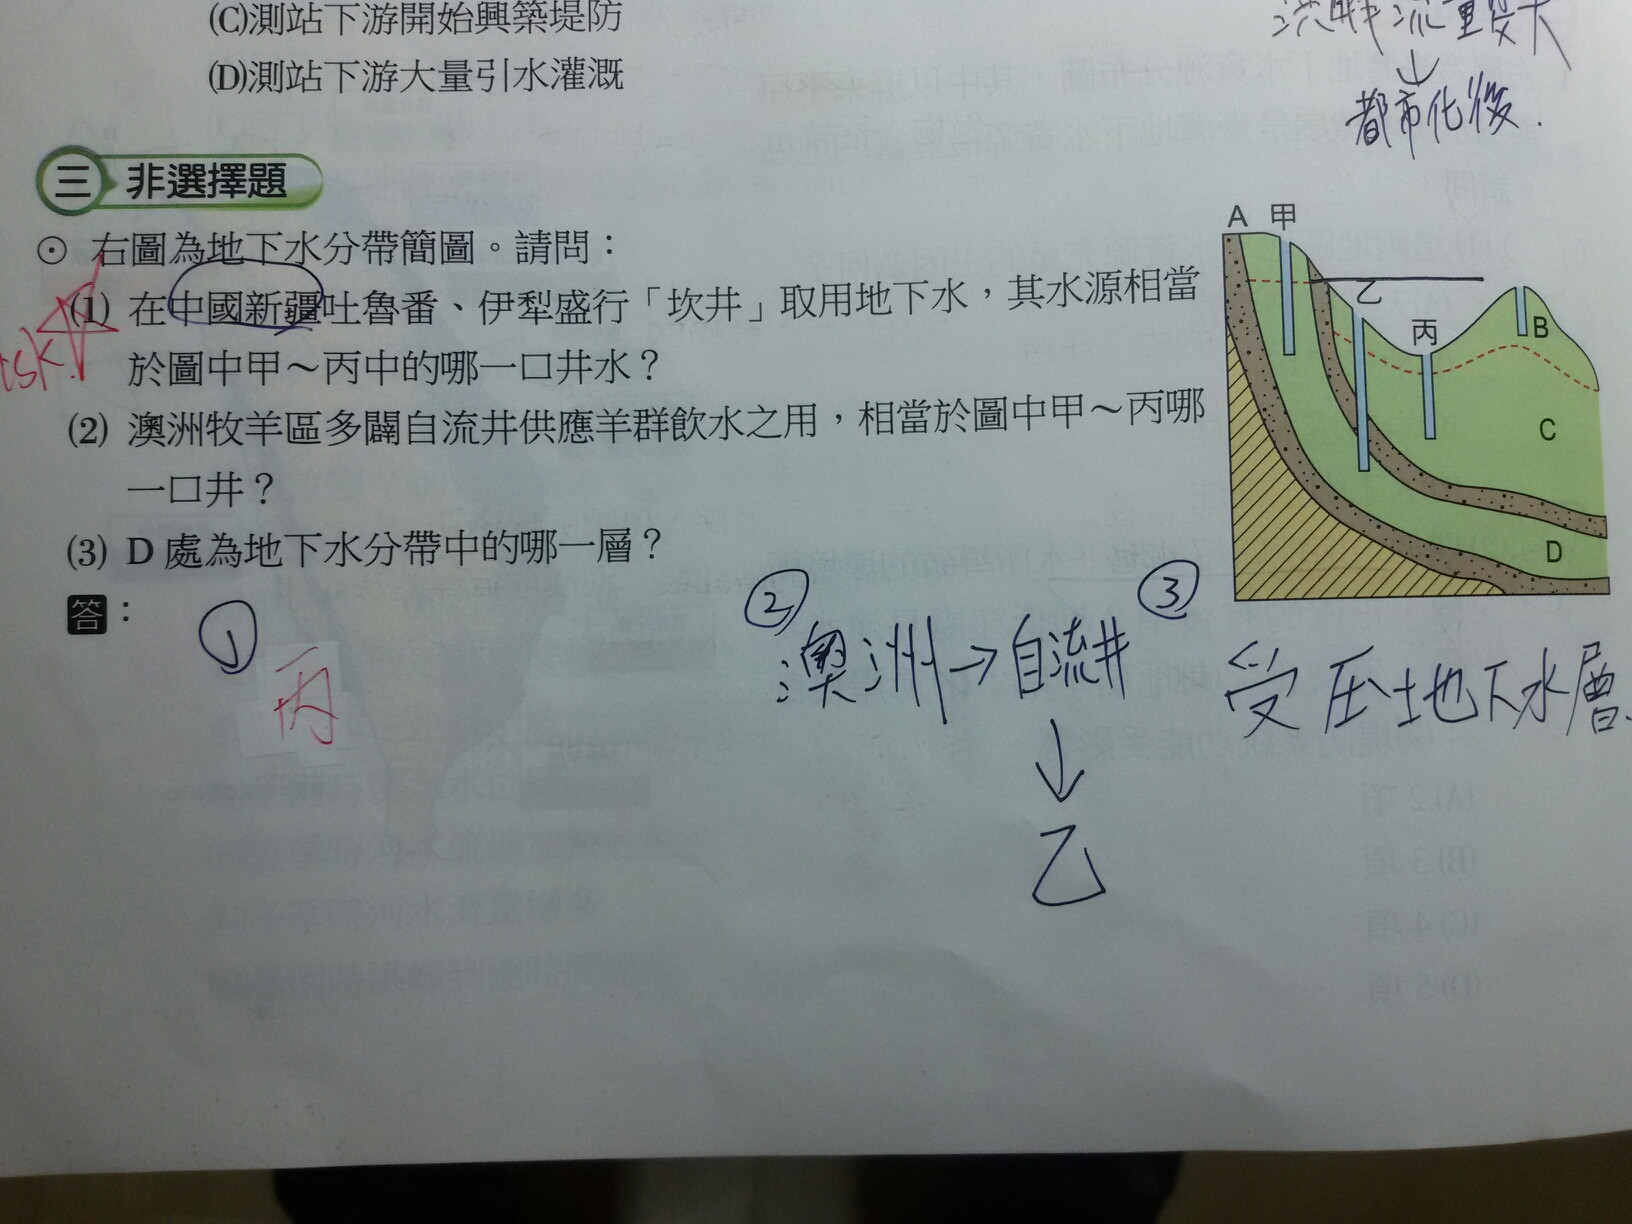 (C)測站下游開始興築堤防
(D)測站下游大量引水灌溉
都市化後.
三 非選擇題
⊙ 右圖為地下水分帶簡圖。請問：
(1) 在中國新疆吐魯番、伊犁盛行「坎井」取用地下水，其水源相當
於圖中甲～丙中的哪一口井水？
(2) 澳洲牧羊區多闢自流井供應羊群飲水之用，相當於圖中甲～丙哪
一口井？
(3) D 處為地下水分帶中的哪一層？
A 甲
乙
丙
B
C
D
答：
① 丙
② 澳洲→自流井
↓
乙
③ 受压地下水層.
(A) 2 項
(B) 3 項
(C) 4 項
(D) 5 項